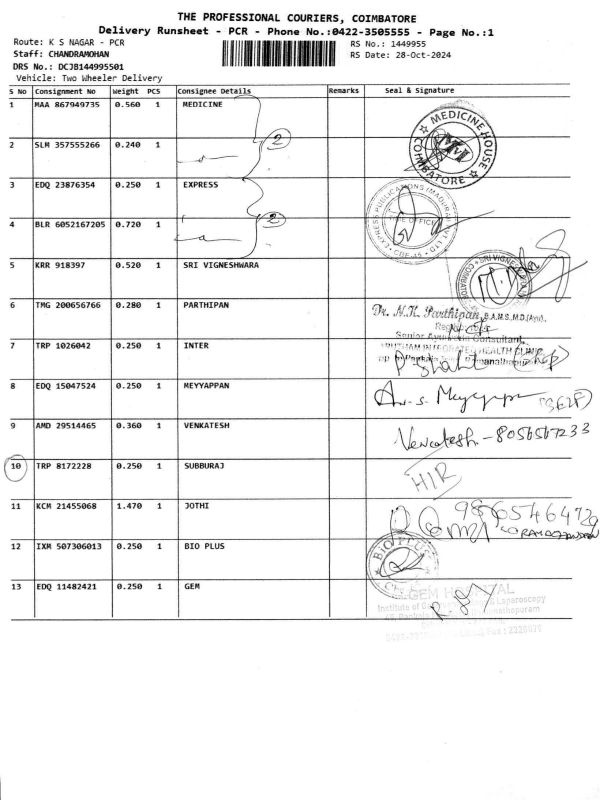 THE PROFESSIONAL COURIERS, COIMBATORE
Delivery Runsheet - PCR - Phone No.:0422-3505555 - Page No.:1
Route: K S NAGAR - PCR
RS No.: 1449955
Staff: CHANDRAMOHAN
RS Date: 28-Oct-2024
DRS No.: DCJB144995501
Vehicle: Two Wheeler Delivery
S No Consignment No Weight PCS Consignee Details Remarks Seal & Signature
1 MAA 867949735 0.560 1 MEDICINE
MEDICINE HOUSE COIMBATORE
2 SLM 357555266 0.240 1
2
3 EDQ 23876354 0.250 1 EXPRESS
EXPRESS PUBLICATIONS (MADURAI)
4 BLR 6052167205 0.720 1
2
5 KRR 918397 0.520 1 SRI VIGNESHWARA
6 TMG 200656766 0.280 1 PARTHIPAN
Dr. N.K. Parthipan, B.A.M.S,M.D.(Ayu),
Senior Ayurvedic Consultant,
7 TRP 1026042 0.250 1 INTER
INTEGRATED HEALTH CLINIC
8 EDQ 15047524 0.250 1 MEYYAPPAN
9 AMD 29514465 0.360 1 VENKATESH
Venkatesh - 8056567233
10 TRP 8172228 0.250 1 SUBBURAJ
HIR
11 KCM 21455068 1.470 1 JOTHI
12 IXM 507306013 0.250 1 BIO PLUS
BIO PLUS
13 EDQ 11482421 0.250 1 GEM
GEM HOSPITAL
Institute of Laparoscopy